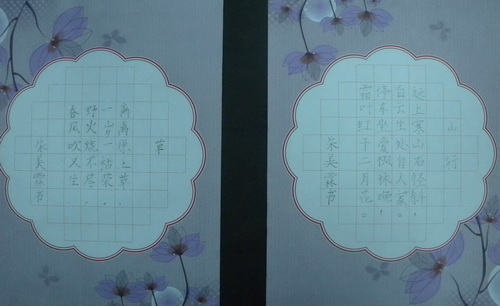 草
离离原上草,
一岁一枯荣.
野火烧不尽,
春风吹又生
朱奕霖书
山行
远上寒山石径斜,
白云生处有人家。
停车坐爱枫林晚,
霜叶红于二月花。
朱奕霖书